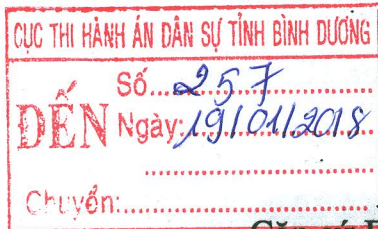 CỤC THI HÀNH ÁN DÂN SỰ TỈNH BÌNH DƯƠNG
ĐẾN
Số...257
Ngày:19/01/2018
Chuyển:
Căn cứ